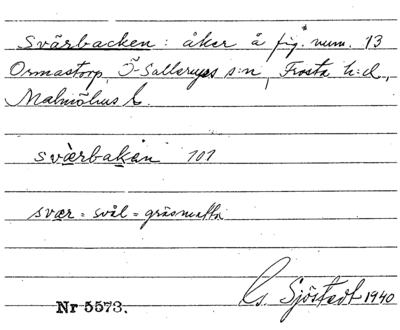 Svärbacken: åker å fig. num. 13
Ormastorp, Ö. Sallerups s:n, Frosta h:d.,
Malmöhus l.
sværbakan 101
svær = svål = gräsmatta
Gs. Sjöstedt 1940
Nr 5573.